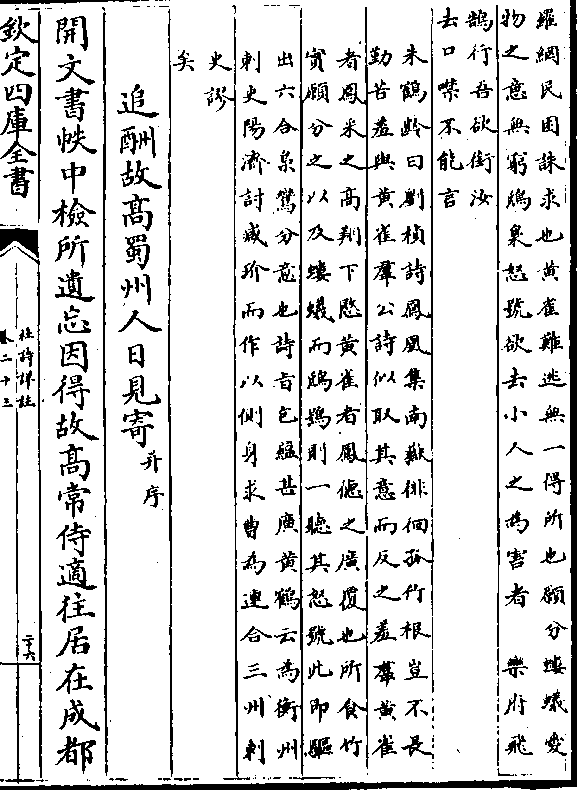 羅網民困誅求也黄雀難逃無一得所也願分螻蟻愛
物之意無窮鴟梟怒號欲去小人之為害者　樂府飛
鵠行吾欲銜汝
去口噤不能言
朱鶴齡曰劉楨詩鳳凰集南嶽徘徊孤竹根豈不長
勤苦羞與黄雀羣公詩似取其意而反之羞羣黄雀
者鳳采之高翔下愍黄雀者鳳德之廣覆也所食竹
實願分之以及螻蟻而鴟鴞則一聽其怒號此即驅
出六合梟鸞分意也詩旨包蘊甚廣黄鶴云為衡州
刺史陽濟討臧玠而作以側身求曹為連合三州刺
史謬
矣
追酬故髙蜀州人日見寄并序
開文書帙中檢所遺忘因得故髙常侍適往居在成都
欽定四庫全書
杜詩詳註
卷二十三
二十六